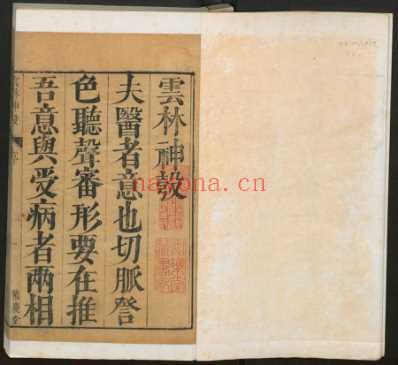 雲林神彀
夫醫者意也切脈詧
色聽聲審形要在推
吾意與受病者兩相
nayona.cn